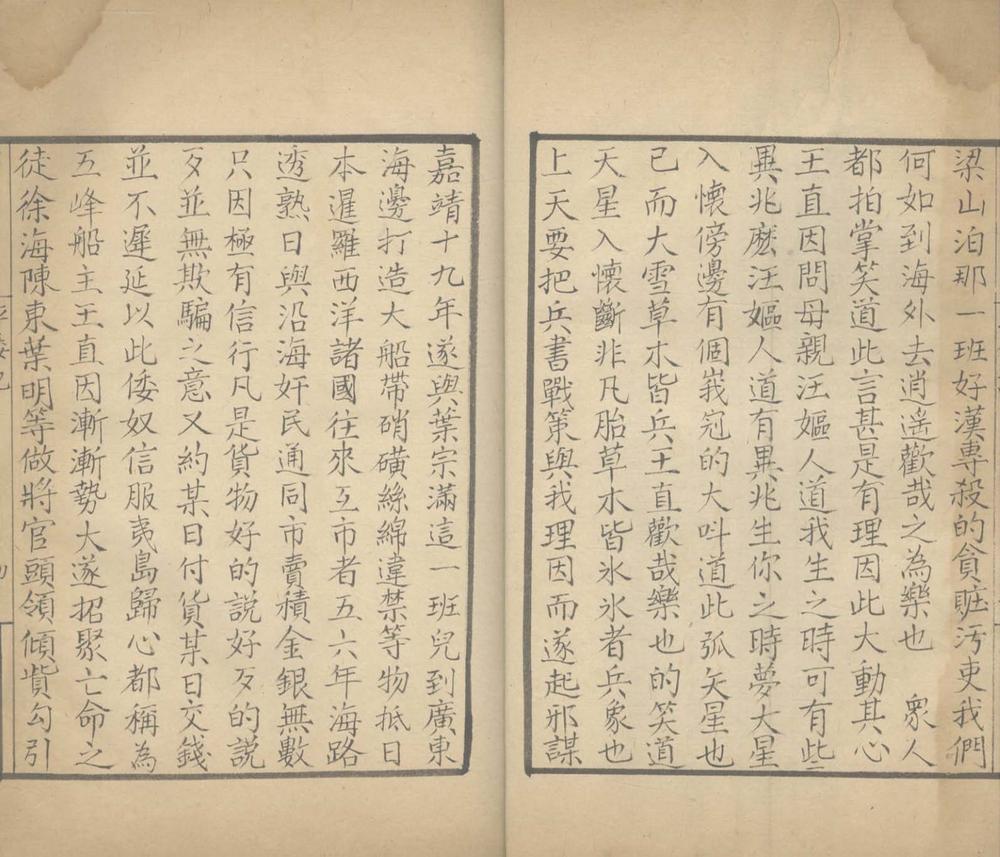 梁山泊那一班好漢專殺的貪賍汚吏我們
何如到海外去逍遥歡哉之為樂也　衆人
都拍掌笑道此言甚是有理因此大動其心
王直因問母親汪嫗人道我生之時可有些
異兆麽汪嫗人道有異兆生你之時夢大星
入懷傍邊有個峩冠的大呌道此弧矢星也
已而大雪草木皆兵王直歡哉樂也的笑道
天星入懷斷非凡胎草木皆氷氷者兵象也
上天要把兵書戰策與我理因而遂起邪謀
嘉靖十九年遂與葉宗滿這一班兒到廣東
海邊打造大船帶硝磺絲綿違禁等物抵日
本暹羅西洋諸國往來互市者五六年海路
透熟日與沿海奸民通同市賣積金銀無數
只因極有信行凡是貨物好的說好歹的說
歹並無欺騙之意又約某日付貨某日交錢
並不遲延以此倭奴信服夷島歸心都稱為
五峰船主王直因漸漸勢大遂招聚亡命之
徒徐海陳東葉明等做將官頭領傾貲勾引